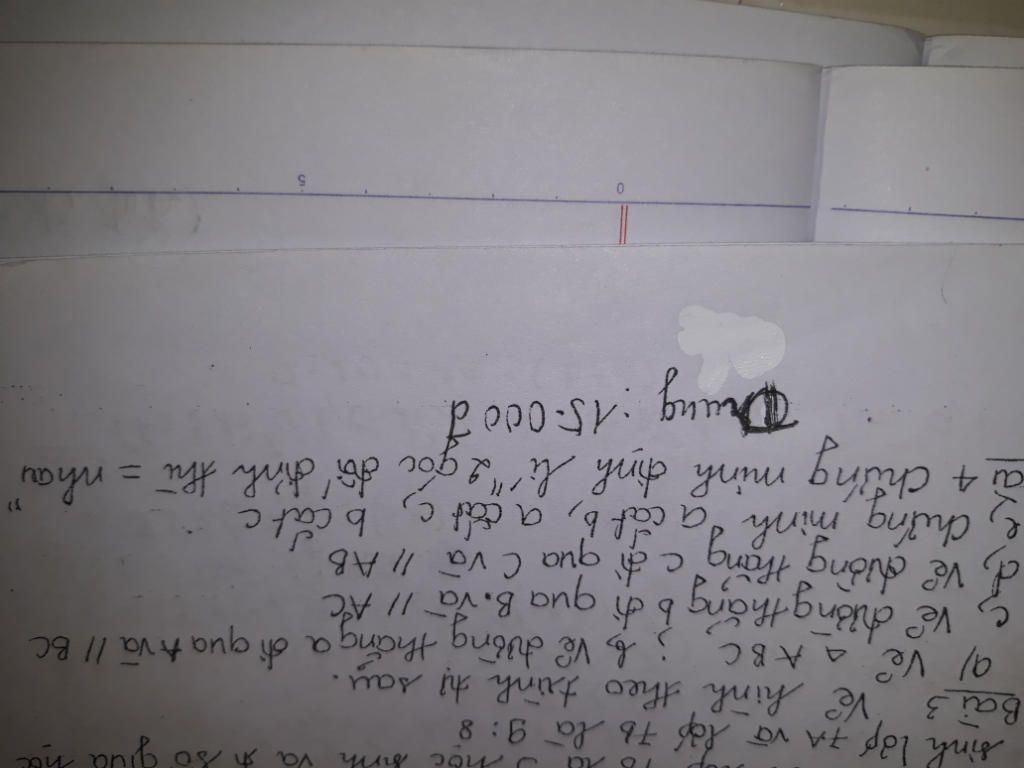 7B là 5 học sinh và tỉ số giữa học
sinh lớp 7A và lớp 7B là 9:8
Bài 3 Vẽ hình theo trình tự sau.
a) Vẽ △ ABC ; b, Vẽ đường thẳng a đi qua A và // BC
c, Vẽ đường thẳng b đi qua B và // AC
d, Vẽ đường thẳng c đi qua C và // AB
e, chứng minh a cắt b, a cắt c, b cắt c
Bài 4 chứng minh định lí "2 góc đối đỉnh thì = nhau"
Dung : 15.000 đ
0 5